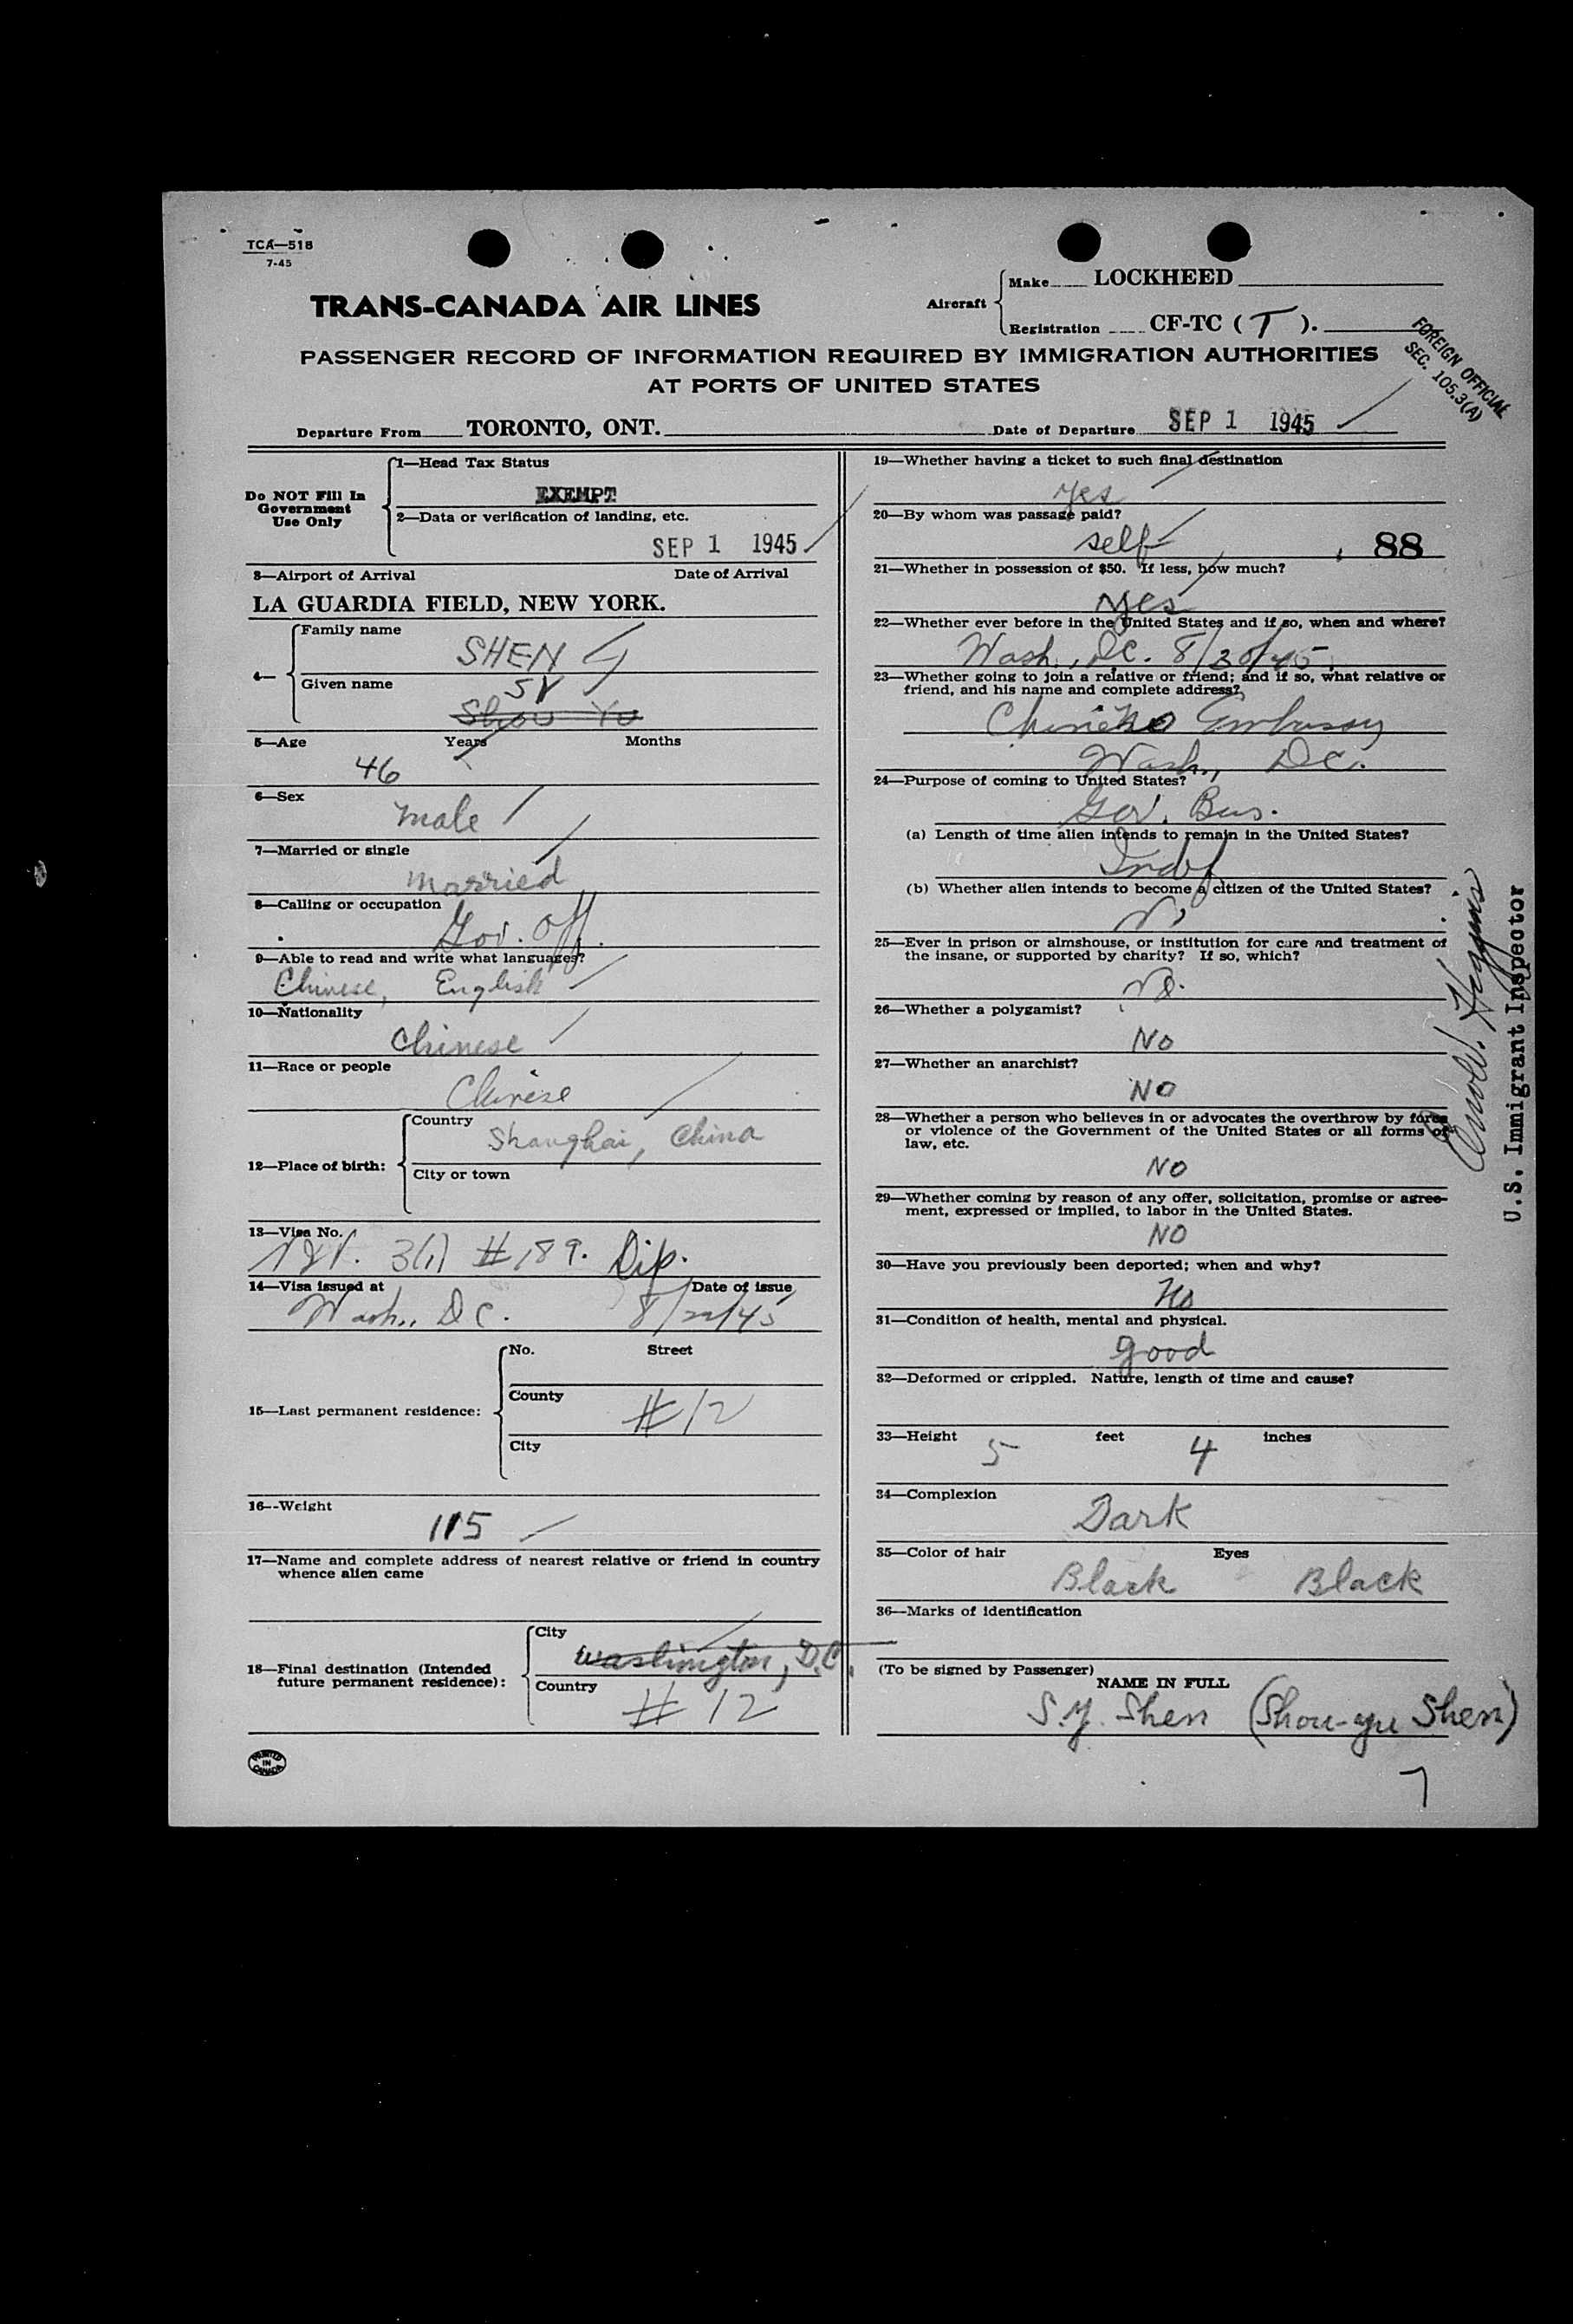 TCA—518
7-45
TRANS-CANADA AIR LINES
Aircraft
Make LOCKHEED
Registration CF-TC ( T ).
FOREIGN OFFICIAL
SEC. 105.3(A)
PASSENGER RECORD OF INFORMATION REQUIRED BY IMMIGRATION AUTHORITIES
AT PORTS OF UNITED STATES
Departure From TORONTO, ONT. Date of Departure SEP 1 1945
Do NOT Fill In
Government
Use Only
1—Head Tax Status
EXEMPT
2—Data or verification of landing, etc.
SEP 1 1945
3—Airport of Arrival Date of Arrival
LA GUARDIA FIELD, NEW YORK.
4—
Family name
SHEN
Given name
SY
Shou Yu
5—Age Years Months
46
6—Sex
Male
7—Married or single
Married
8—Calling or occupation
Gov. Off.
9—Able to read and write what languages?
Chinese, English
10—Nationality
Chinese
11—Race or people
Chinese
12—Place of birth:
Country
Shanghai, China
City or town
13—Visa No.
3(1) #189. Dip.
14—Visa issued at Date of issue
Wash., D.C. 8/22/45
15—Last permanent residence:
No. Street
County
#12
City
16--Weight
115
17—Name and complete address of nearest relative or friend in country
whence alien came
18—Final destination (Intended
future permanent residence):
City
Washington, D.C.
Country
#12
PRINTED
IN
CANADA
19—Whether having a ticket to such final destination
Yes
20—By whom was passage paid?
self
88
21—Whether in possession of $50. If less, how much?
Yes
22—Whether ever before in the United States and if so, when and where?
Wash., D.C. 8/30/45.
23—Whether going to join a relative or friend; and if so, what relative or
friend, and his name and complete address?
Chinese Embassy
Wash., D.C.
24—Purpose of coming to United States?
Gov. Bus.
(a) Length of time alien intends to remain in the United States?
Indf
(b) Whether alien intends to become a citizen of the United States?
No
25—Ever in prison or almshouse, or institution for care and treatment of
the insane, or supported by charity? If so, which?
No.
26—Whether a polygamist?
No
27—Whether an anarchist?
NO
28—Whether a person who believes in or advocates the overthrow by force
or violence of the Government of the United States or all forms of
law, etc.
NO
29—Whether coming by reason of any offer, solicitation, promise or agree-
ment, expressed or implied, to labor in the United States.
NO
30—Have you previously been deported; when and why?
No
31—Condition of health, mental and physical.
good
32—Deformed or crippled. Nature, length of time and cause?
33—Height 5 feet 4 inches
34—Complexion
Dark
35—Color of hair Eyes
Black Black
36—Marks of identification
(To be signed by Passenger)
NAME IN FULL
S.Y. Shen (Shou-yu Shen)
7
Higgins
U.S. Immigrant Inspector